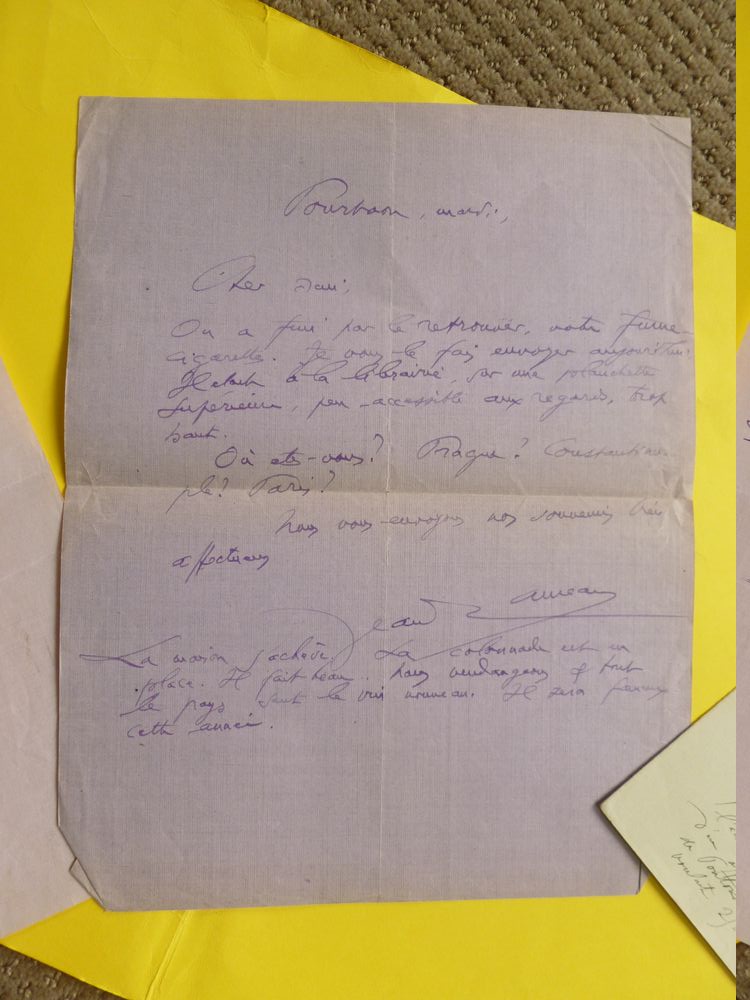 Pourtaou, mardi,
Cher ami,
On a fini par le retrouver, votre fume-
cigarette. Je vous le fais envoyer aujourd'hui.
Il était à la librairie, sur une planchette
supérieure, peu accessible aux regards, trop
haut.
Où êtes-vous? Prague? Constantino-
ple? Paris?
Nous vous envoyons nos souvenirs très
affectueux
Jean Rameau
La maison s'achève. La colonnade est en
place. Il fait beau. Nous vendangeons & tout
le pays sent le vin nouveau. Il sera fameux
cette année.